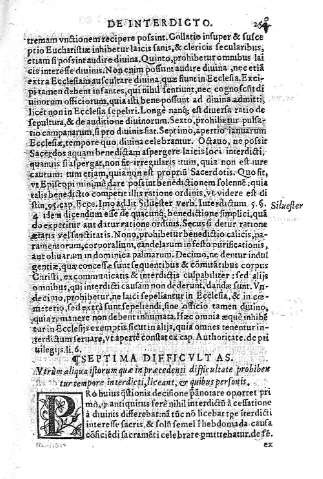 DE INTERDICTO.
tremam vnctionem recipere possint. Collatio insuper & susce
ptio Eucharistiæ inhibetur laicis sanis, & clericis secularibus,
etiam si possint audire diuina. Quinto, prohibetur omnibus lai
cis interesse diuinis. Non enim possunt audire diuina, nec etiã
extra Ecclesiam auscultare diuina, quæ fiunt in Ecclesia. Exci
pi tamen debent infantes, qui nihil sentiunt, nec cognoscũt di
uinorum officium, qui ista bene possunt ad diuina admitti,
licèt non in Ecclesia sepeliri. Longè nanq; est diuersa ratio de
sepultura, & de auditione diuinorum. Sexto, prohibetur pulsa-
tio campanarum, si pro diuinis fiat. Septimo, apertio ianuarum
Ecclesiæ, tempore quo diuina celebrantur. Octauo, ne possit
Sacerdos aquam benedictam aspergere laicis loci interdicti,
quamuis si aspergat, non fit irregularis
tum etiam, quia non est proprii Sacerdotis.
vt Episcopi minimè dare possint benedictionem solennē; quia
talis benedictio competit illis ratione ordinis, vt videre est di
Imo addit Siluester verb. Interdictum 5. §.
Siluester
4 idem dicendum esse de quacunq; benedictione simplici, quã
do expetitur aut datur ratione ordinis. Secus si detur ratione
ætatis vel sanctitatis. Nono, prohibetur benedictio calicis, pa-
ramentorum, corporalium, candelarum in festo purificationis,
aut oliuarum in dominica palmarum. Decimo, ne dentur indul
gentiæ, quæ concesse sunt sequentibus & comitãtibus corpus
Christi, excommunicatis & interdictis culpabiliter: sed alijs
omnibus, qui interdicti causam non dederunt, dandæ sunt. Vn-
decimo, prohibetur, ne laici sepeliantur in Ecclesia, & in cœ-
miterio, sed extrà sunt sepeliendi, sine officio tamen diuino,
quia ñ manere non debent inhumata. Hæc omnia æquè inhibē
tur in Ecclesijs exemptis sicut in alijs, quia omnes tenentur in-
terdictum seruare, vt apertè constat ex cap. Authoritate. de pri
uilegijs. li. 6.
SEPTIMA DIFFICVLTAS.
Vtrùm aliqua istorum quæ in præcedenti difficultate prohiben
tur tempore interdicti, liceant, & quibus personis.
PRo huius q̃stionis decisione p̃notare oportet pri
mò, q̃ antiquitus ferè nihil interdictũ à cessatione
à diuinis differebat: nã tũc nõ licebat tp̃e interdicti
interesse sacris, & solũ semel ĩ hebdomada causa
cõficiẽdi sacramẽti celebrare p̃mittebatur.
ex